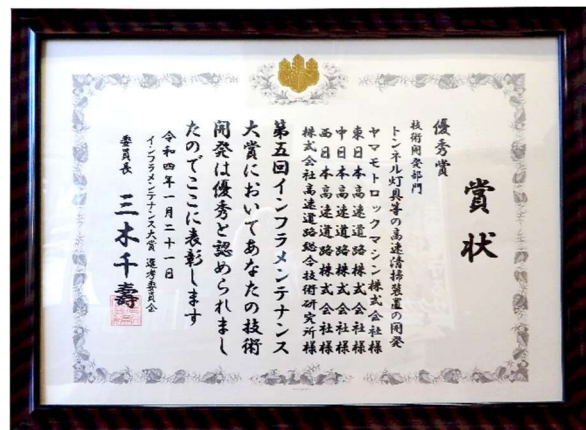 賞状
優秀賞
技術開発部門
トンネル灯具等の高速清掃装置の開発
ヤマモトロックマシン株式会社様
東日本高速道路株式会社様
中日本高速道路株式会社様
西日本高速道路株式会社様
株式会社高速道路総合技術研究所様
第五回インフラメンテナンス
大賞においてあなたの技術
開発は優秀と認められまし
たのでここに表彰します
令和四年一月二十一日
インフラメンテナンス大賞 選考委員会
委員長 三木千壽